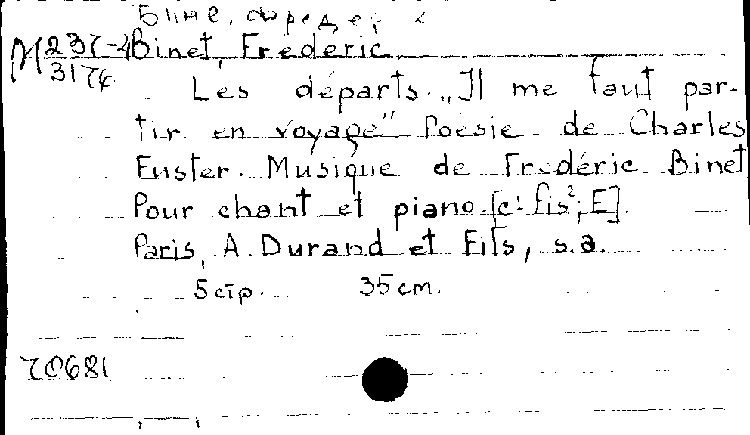 Бине, Фредерик
М 237-4 Binet, Frederic
3174
Les départs. „Il me faut par-
tir en voyage" Poesie de Charles
Fuster. Musique de Frédéric Binet
Pour chant et piano. [c¹-fis²; E].
Paris, A. Durand et Fils, s.a.
5 стр. 35 cm.
70681